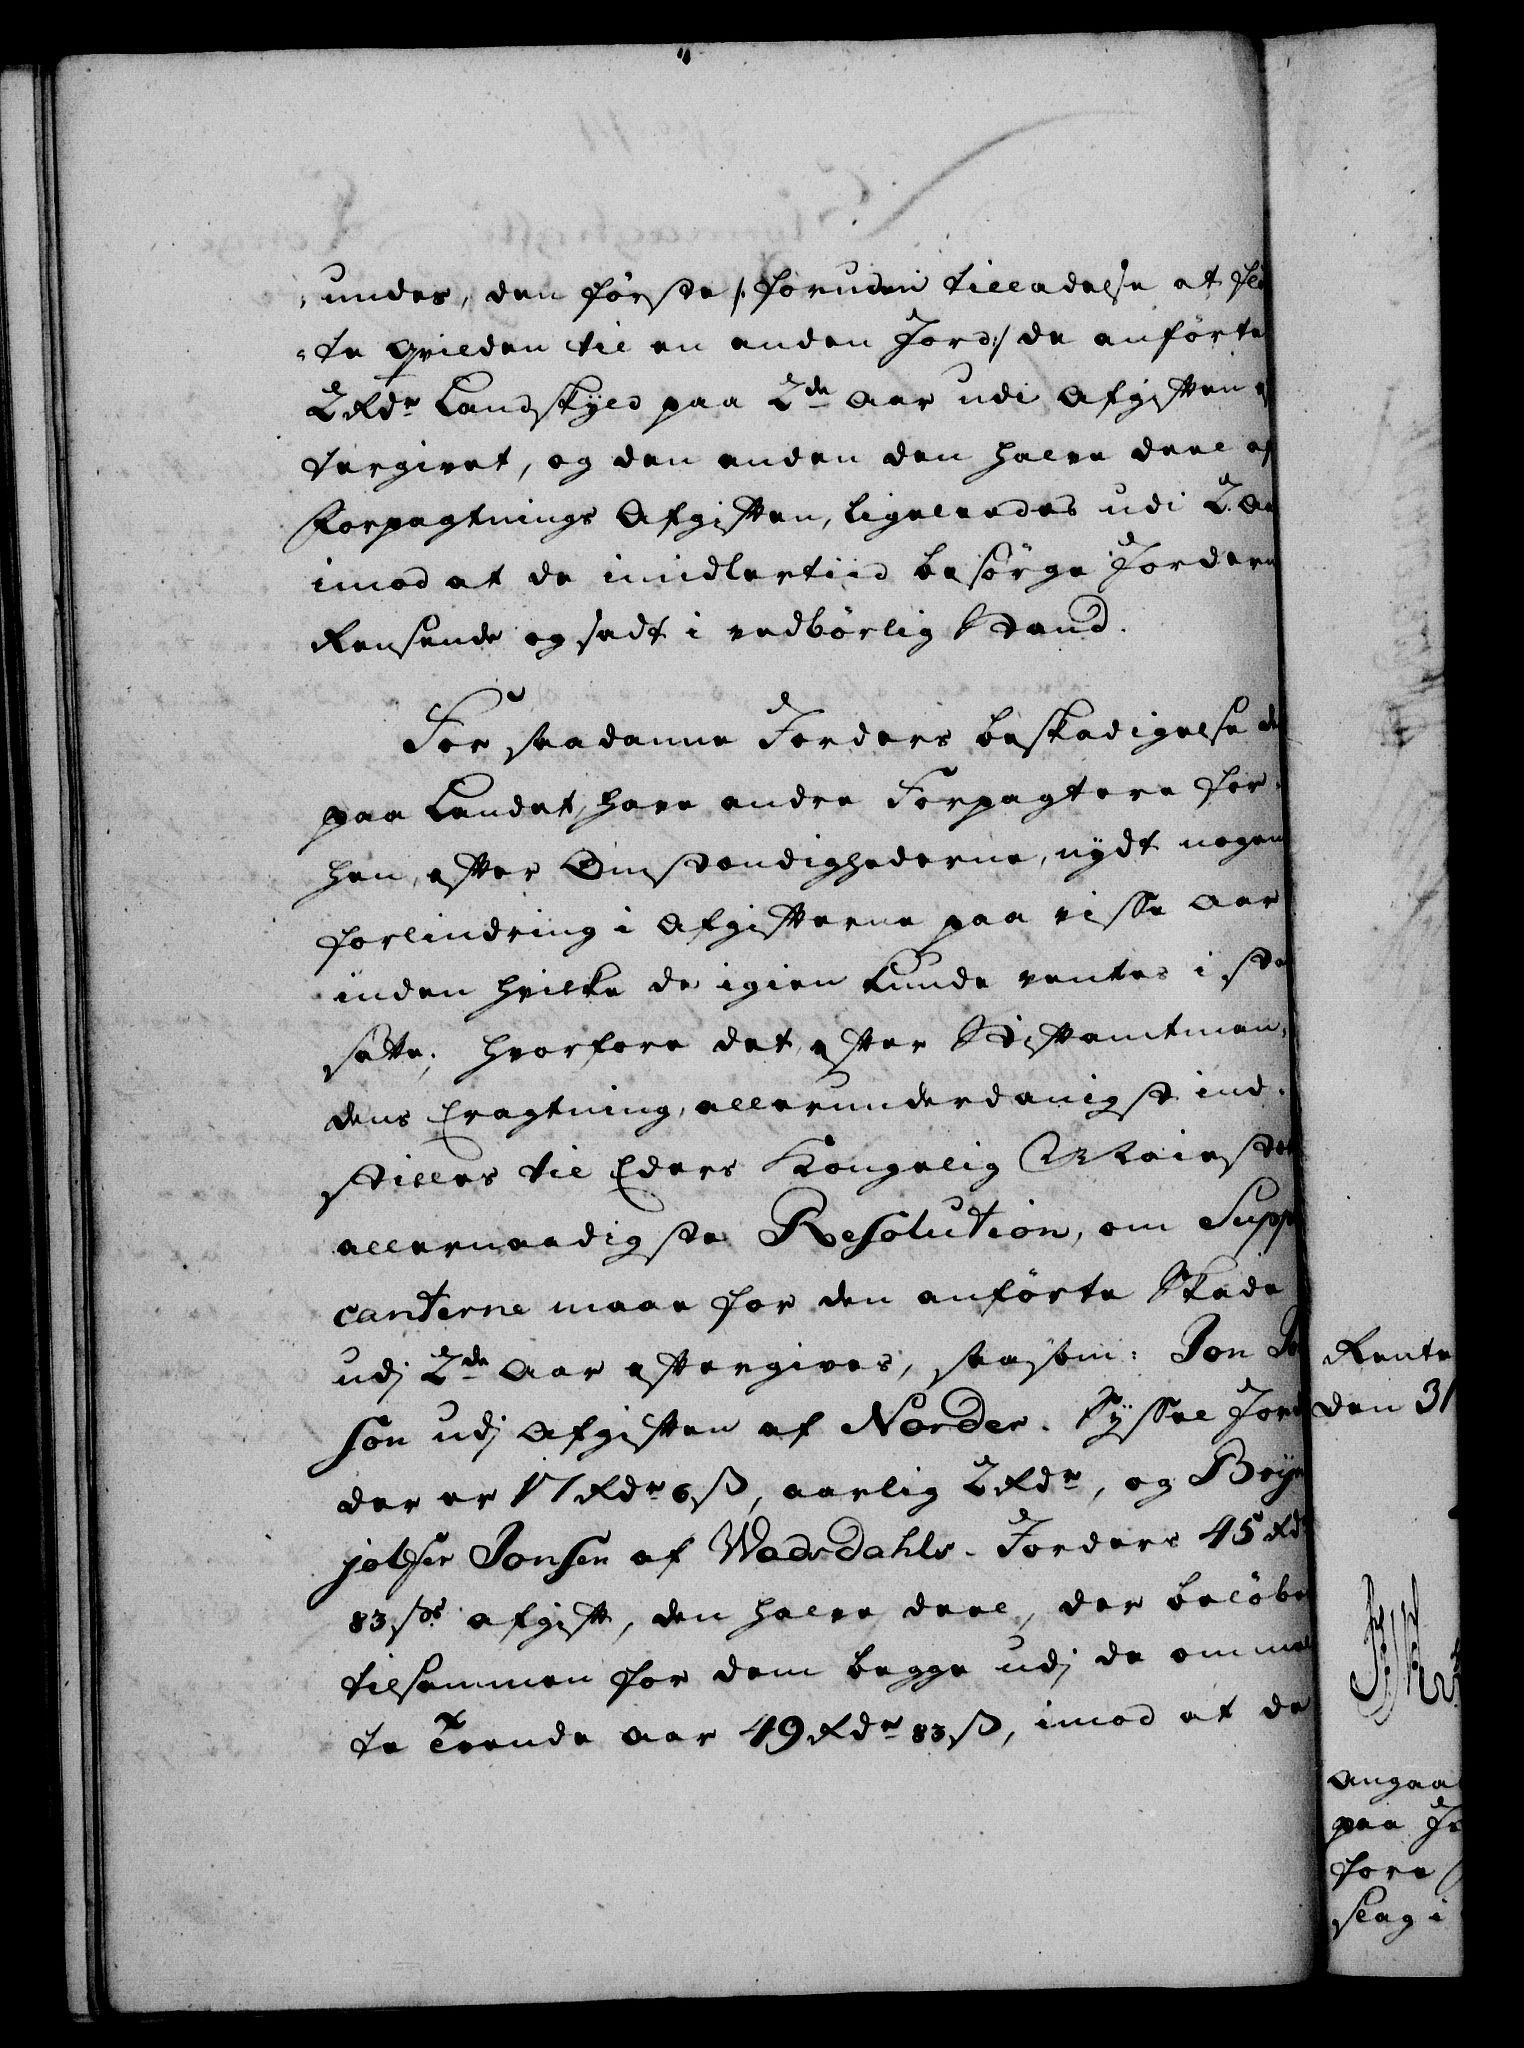 undes, den første /: foruden tilladelse at flÿ
te Qvilden til en anden Jord :/ de anførte
2 Rdr Landskyld paa 2de Aar udi Afgiften ef
tergivet, og den anden den halve deel af
Forpagtnings Afgiften, ligeleedes udi 2 Aa
imod at de imidlertiid besørge Jordern
Rensende og sadt i vedbørlig Stand.
For saadanne Jorders beskadigelse de
paa Landet, have andre Forpagtere for-
hen, efter Omstændighederne, nydt nogen
forlindring i Afgifterne paa visse Aar
inden hvilke de igien kunde ventes i sta
satte; hvorfore det, efter Stiftamtman-
dens Eragtning, allerunderdanigst ind-
stilles til Eders Kongelig Maiestet
allernaadigste Resolution, om Suppl
canterne maae for den anførte Skade
udj 2de Aar eftergives, saasom: Jon Jo
son udj Afgiften af Norder-Syssel Jord
der er 17 Rdr 6 ß, aarlig 2 Rdr, og Bryn
jolfer Jonsen af Wadsdahls-Jorders 45 Rd
83 ß afgift, den halve deel, der beløbe
tilsammen for dem begge udj de ommel
te Tvende Aar 49 Rdr 83 ß, imod at de
Rente
den 31
Angaa
paa Is
fore
slag i